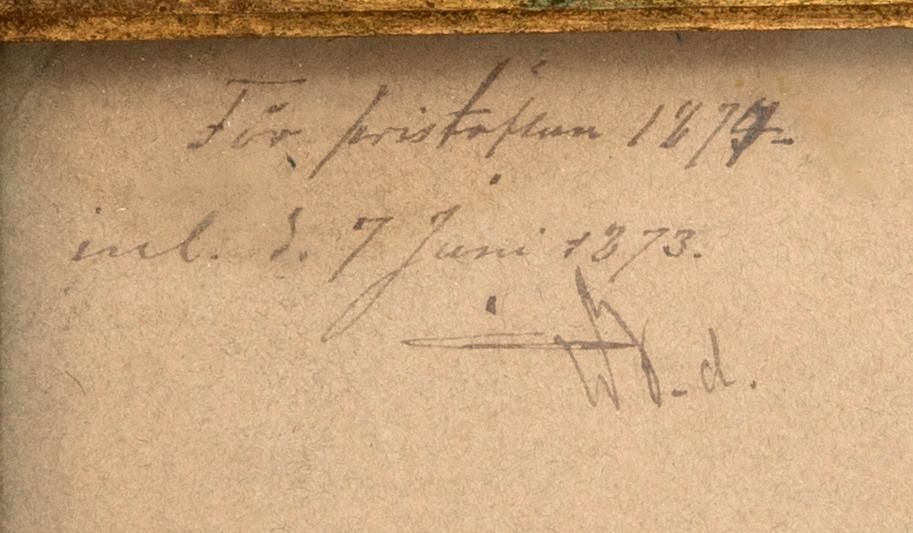 För pristäflan 1874
inl. d. 7 Juni 1873.